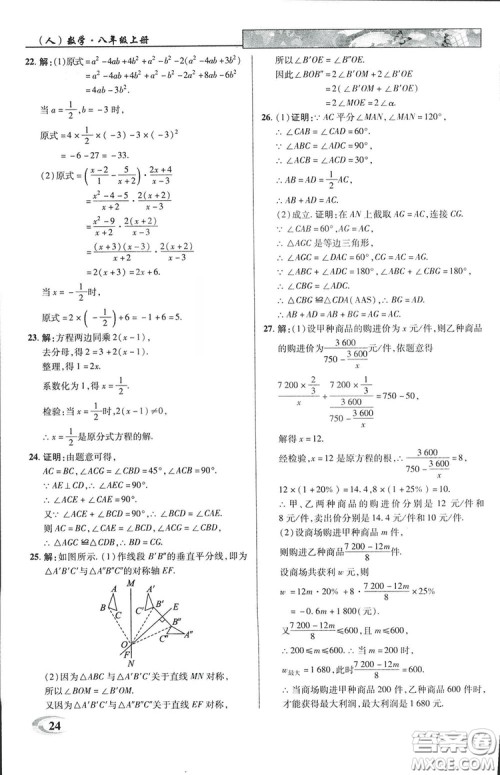 （人）数学·八年级上册
22. 解:(1)原式=a²-4ab+4b²+a²-b²-2a²+8ab-6b²
=a²-4ab+4b²+a²-b²-2a²+8ab-6b²
=4ab-3b².
当 a=1/2, b=-3时,
原式=4×1/2×(-3)-3×(-3)²
=-6-27=-33.
(2)原式=((x-2)/1-5/(x+2))·(2x+4)/(x-3)
=(x²-4-5)/(x+2)·(2(x+2))/(x-3)
=(x²-9)/(x+2)·(2(x+2))/(x-3)
=((x+3)(x-3))/(x+2)·(2(x+2))/(x-3)
=2(x+3)=2x+6.
当 x=-1/2时,
原式=2×(-1/2)+6=-1+6=5.
23. 解:方程两边同乘2(x-1),
去分母,得2=3+2(x-1).
整理,得1=2x.
系数化为1,得x=1/2.
检验:当x=1/2时,2(x-1)≠0,
∴x=1/2是原分式方程的解.
24. 证明:由题意可得,
AC=BC,∠ACG=∠BCD=45°,∠ACB=90°.
∵AE⊥CD,
∴∠ACE+∠CAE=90°.
又∵∠ACE+∠BCF=90°,
∴∠CAE=∠BCF.
又∵∠ACG=∠CBD=45°,AC=BC,
∴△ACG≌△CBD.
25. 解:如图所示.(1)作线段B′B″的垂直平分线,即为
△A′B′C′与△A″B″C″的对称轴EF.
M
A
B
C
A′
B′
C′
E
B″
C″
A″
O
F
N
(2)因为△ABC与△A′B′C′关于直线MN对称,
所以∠BOM=∠B′OM.
又因为△A′B′C′与△A″B″C″关于直线EF对称,
24
所以∠B′OE=∠B″OE.
因此∠BOB″=2∠B′OM+2∠B′OE
=2∠MOE=2∠α.
26. (1)证明:∵AC平分∠MAN,∠MAN=120°,
∴∠CAB=∠CAD=60°.
∵∠ABC=∠ADC=90°,
∴∠ACB=∠ACD=30°.
∴AB=AD=1/2AC,
∴AB+AD=AC.
(2)成立.证明:在AN上截取AG=AC,连接CG.
∵∠CAB=60°,AG=AC,
∴△AGC是等边三角形,
∴∠AGC=∠DAC=60°,CG=AC=AG.
∵∠ABC+∠ADC=180°,∠ABC+∠CBG=180°,
∴∠CBG=∠ADC.
∴△CBG≌△CDA(AAS),∴BG=AD.
∴AB+AD=AB+BG=AG=AC.
27. 解:(1)设甲种商品的购进价为x元/件,则乙种商品
的购进价为3 600/(750-3 600/x)元/件,依题意得
(7 200×2/3)/x+(7 200×1/3)/(3 600/(750-3 600/x))=750-50,
解得x=12.
经检验,x=12是原方程的根,∴3 600/(750-3 600/x)=8,
12×(1+20%)=14.4,8×(1+25%)=10.
∴甲、乙两种商品的购进价分别是12元/件和
8元/件,卖出价分别是14.4元/件和10元/件.
(2)设购进甲种商品m件,
则购进乙种商品(7 200-12m)/8件.
设商场共获利w元,则
w=12m·20%+8·(7 200-12m)/8×25%
=-0.6m+1 800(元).
又∵(7 200-12m)/8≤600,且m≤600,
∴200≤m≤600.∴当m=200时,
w最大=1 680,此时(7 200-12m)/8=600.
∴当商场购进甲种商品200件,乙种商品600件
时,可获得最大利润,最大利润是1 680元.